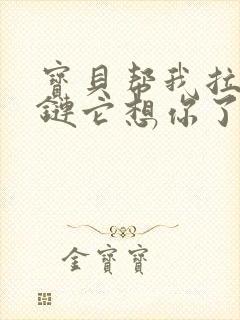 寶貝幫我拉
鏈它想你了
金寶寶